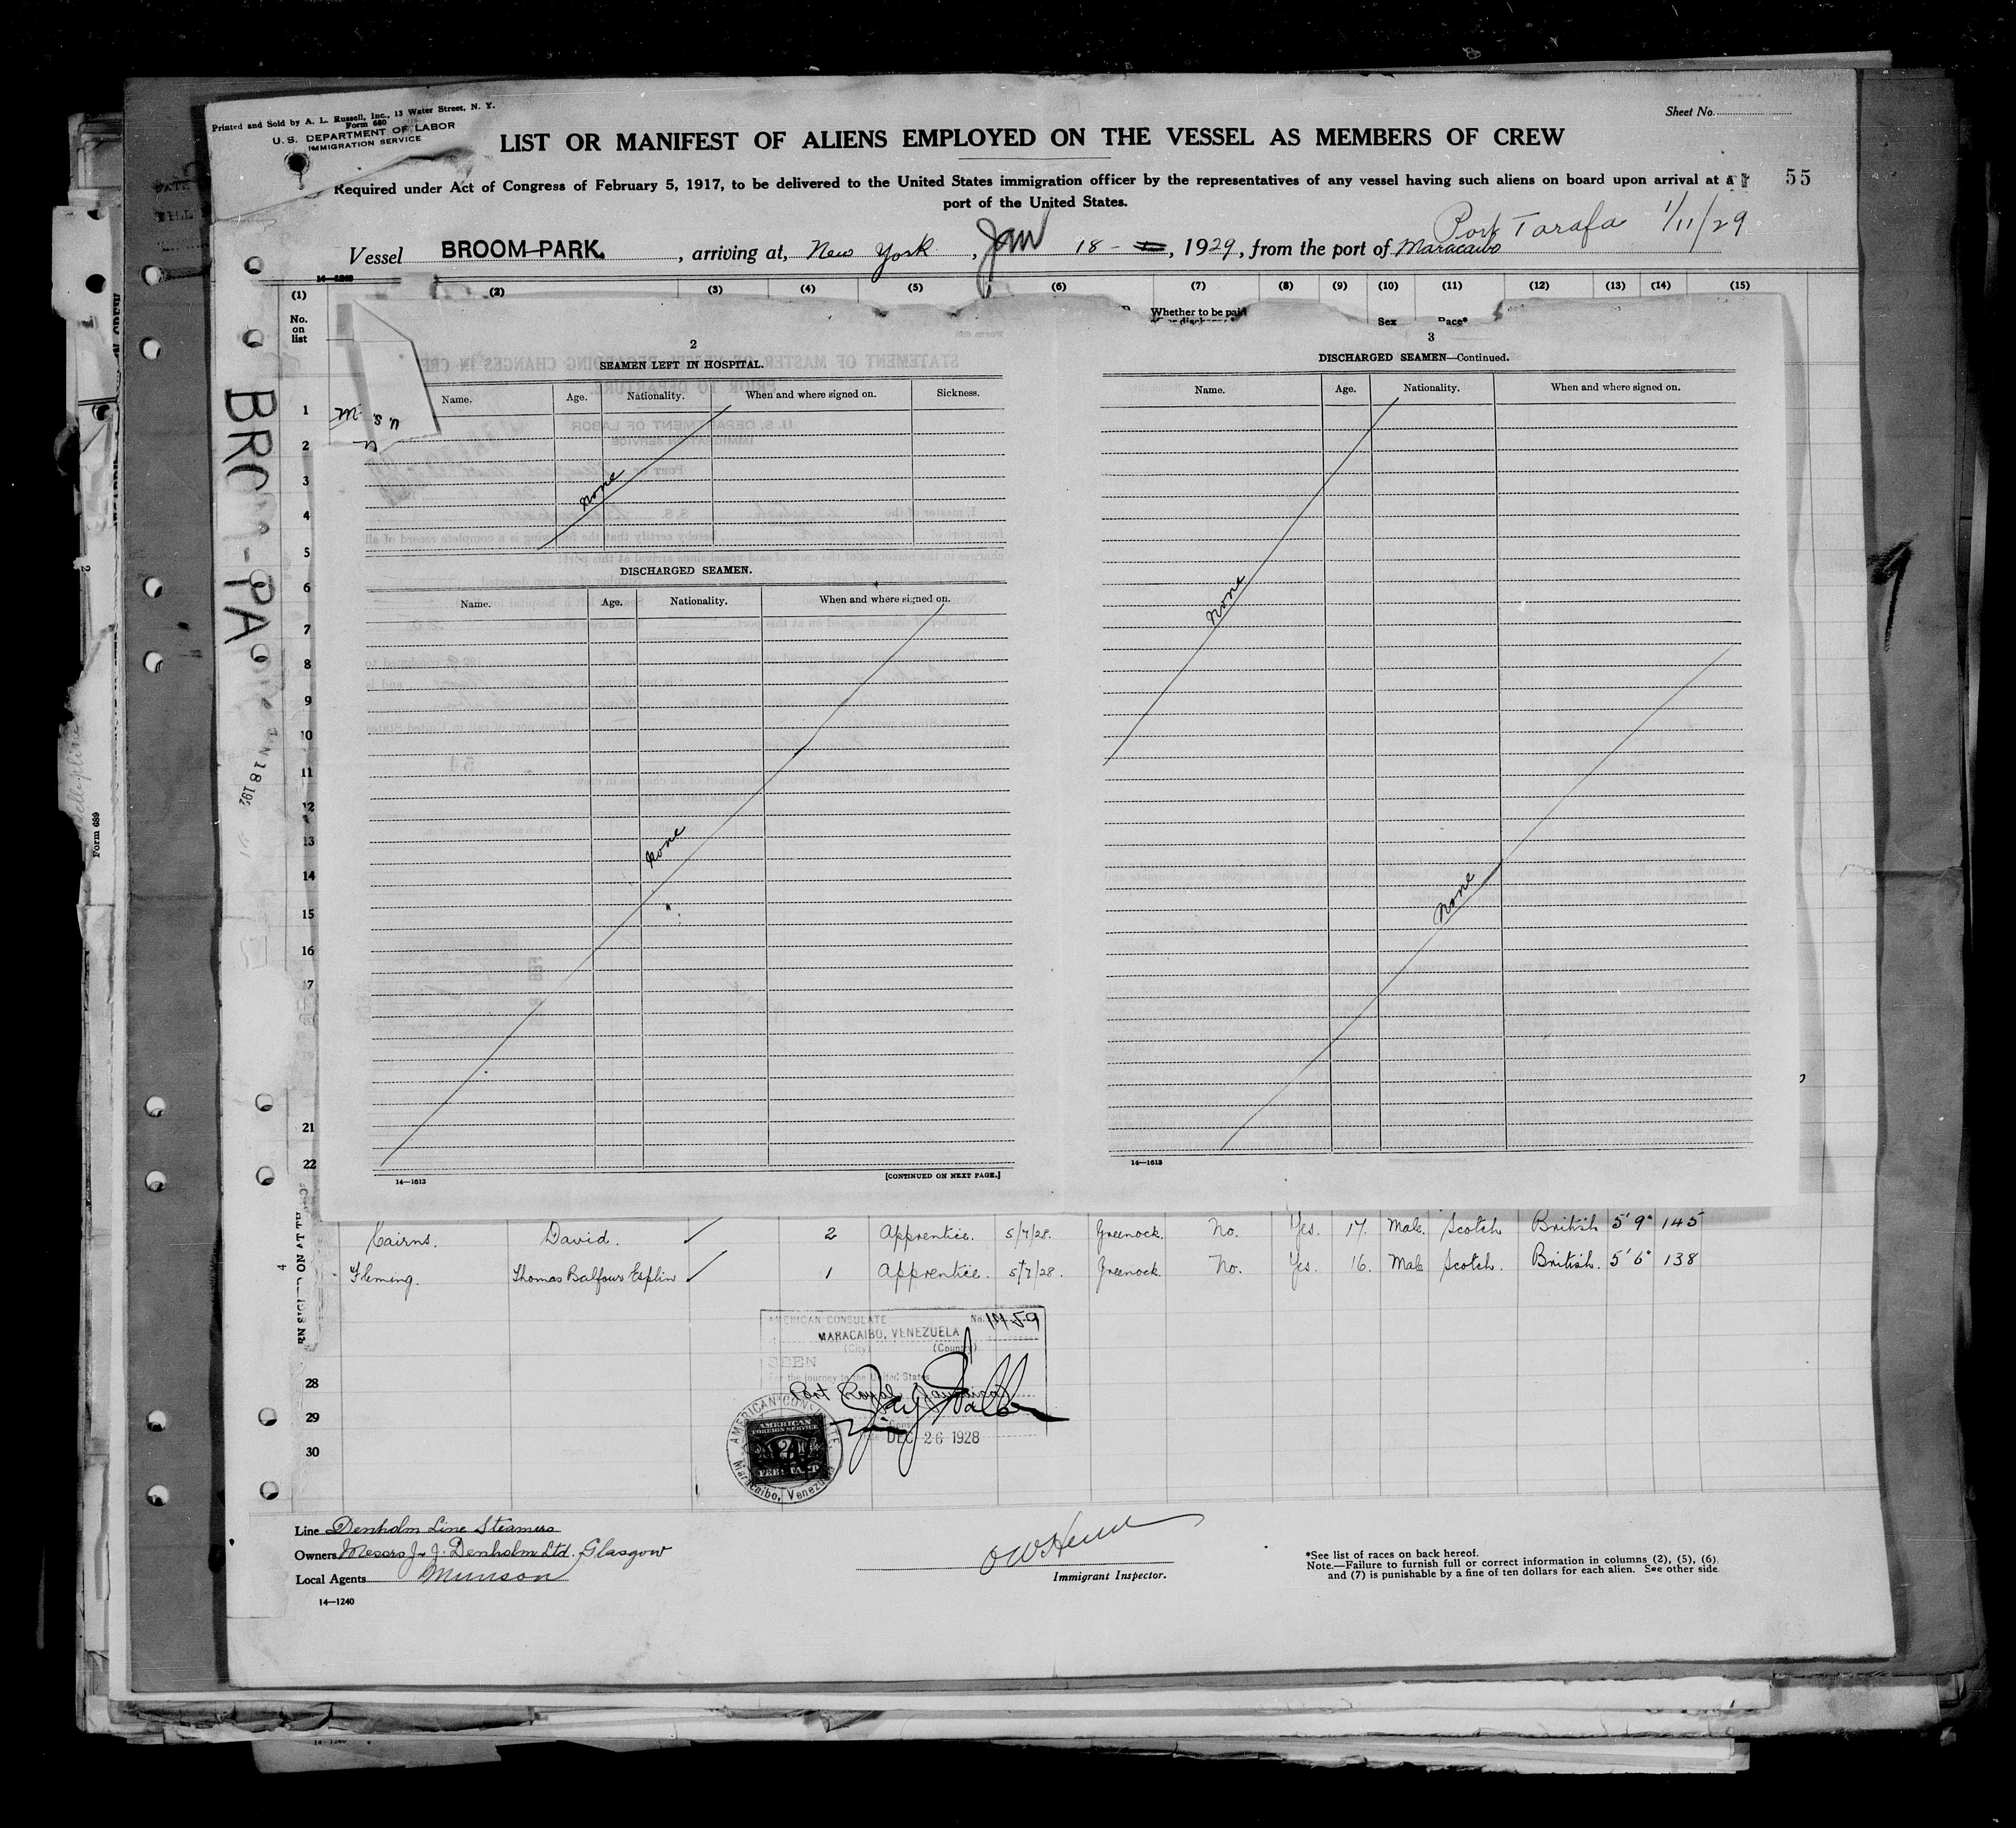 Printed and Sold by A. L. Russell, Inc., 13 Water Street, N. Y.
Form 680
U. S. DEPARTMENT OF LABOR
IMMIGRATION SERVICE
Sheet No.
LIST OR MANIFEST OF ALIENS EMPLOYED ON THE VESSEL AS MEMBERS OF CREW
Required under Act of Congress of February 5, 1917, to be delivered to the United States immigration officer by the representatives of any vessel having such aliens on board upon arrival at a
port of the United States.
55
Port Tarafa 1/11/29
Vessel BROOM-PARK, arriving at, New York, Jan 18 -, 1929, from the port of Maracaibo
14—1240
(1) (2) (3) (4) (5) (6) (7) (8) (9) (10) (11) (12) (13) (14) (15)
No. on list
Whether to be paid
Sex
Race*
BROOM-PARK
JAN 18 192
1
2
3
4
5
6
7
8
9
10
11
12
13
14
15
16
17
21
22
2
SEAMEN LEFT IN HOSPITAL.
Name. Age. Nationality. When and where signed on. Sickness.
None
DISCHARGED SEAMEN.
Name. Age. Nationality. When and where signed on.
None
14—1613 [CONTINUED ON NEXT PAGE.]
3
DISCHARGED SEAMEN—Continued.
Name. Age. Nationality. When and where signed on.
None
None
14—1613
Cairns. David. 2 Apprentice. 5/7/28. Greenock. No. Yes. 17. Male. Scotch British 5' 9" 145
Fleming. Thomas Balfour Esplin 1 Apprentice. 5/7/28. Greenock. No. Yes. 16. Male Scotch. British. 5' 6" 138
28
29
30
AMERICAN CONSULATE No. 1459
MARACAIBO, VENEZUELA
(City) (Country)
SEEN
For the journey to the United States
Port Royal, Jamaica
DEC 26 1928
AMERICAN CONSULATE
Maracaibo, Venezuela
AMERICAN
FOREIGN SERVICE
FEE STAMP
Line Denholm Line Steamers
Owners Messrs J & J. Denholm Ltd. Glasgow
Local Agents Munson
14—1240
Immigrant Inspector.
*See list of races on back hereof.
Note.—Failure to furnish full or correct information in columns (2), (5), (6)
and (7) is punishable by a fine of ten dollars for each alien. See other side
Form 689
14—1240